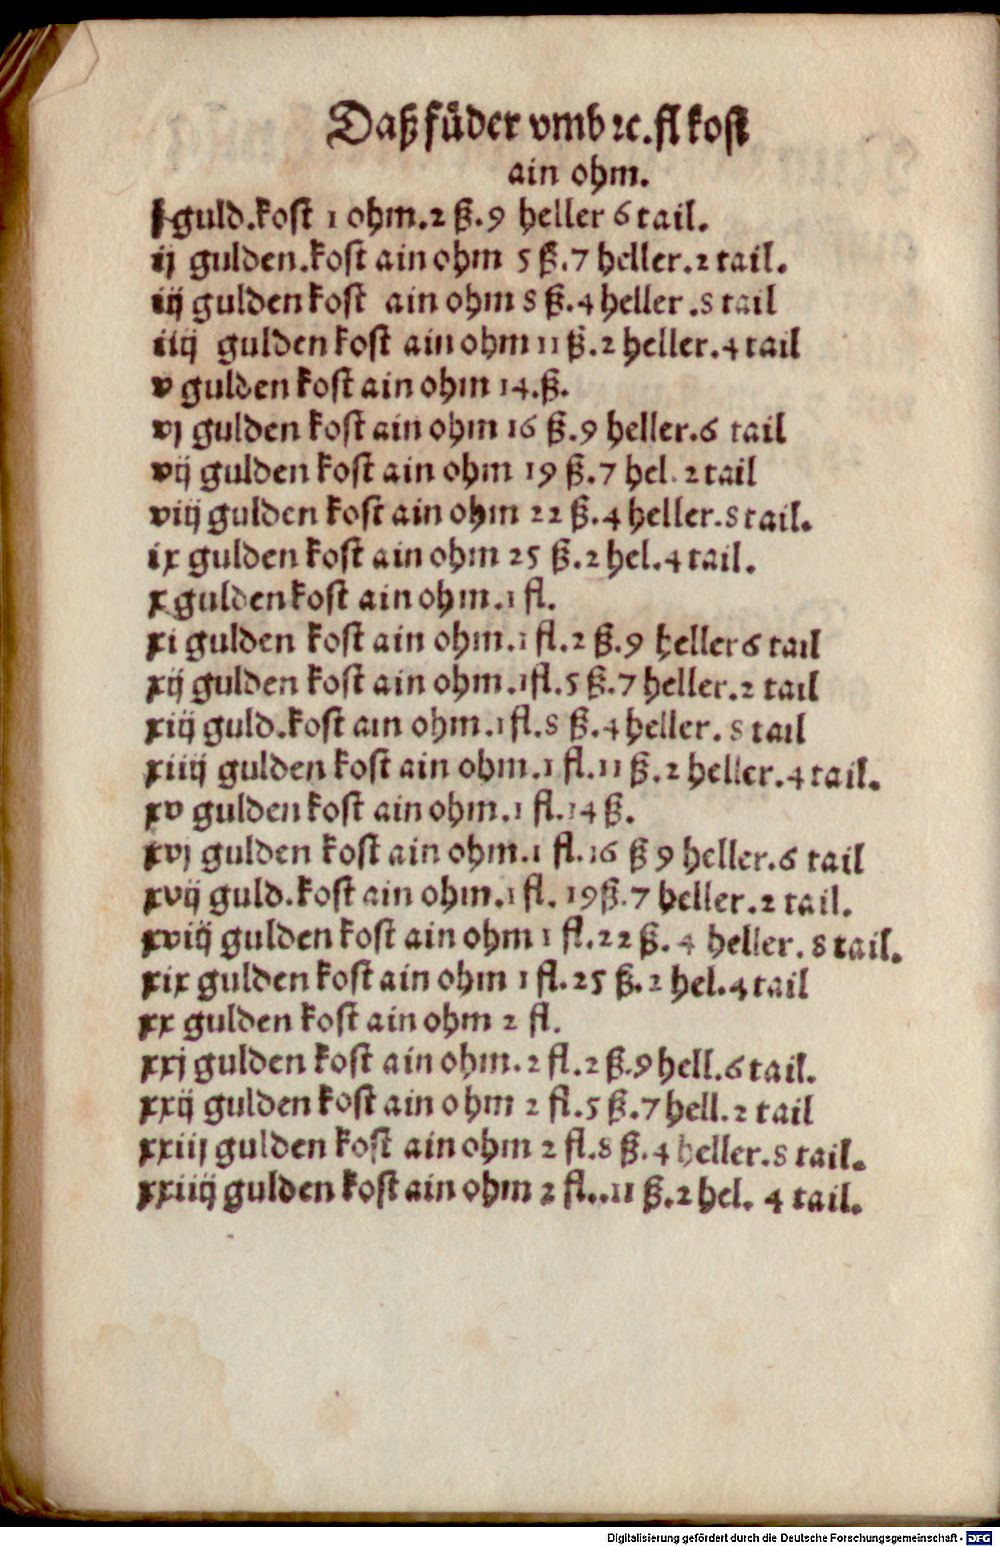 Daß fůder vmb ꝛc. fl kost
ain ohm.
j guld.kost 1 ohm.2 ß.9 heller 6 tail.
ij gulden.kost ain ohm 5 ß.7 heller.2 tail.
iij gulden kost ain ohm 8 ß.4 heller .8 tail
iiij gulden kost ain ohm 11 ß.2 heller.4 tail
v gulden kost ain ohm 14.ß.
vj gulden kost ain ohm 16 ß.9 heller.6 tail
vij gulden kost ain ohm 19 ß.7 hel. 2 tail
viij gulden kost ain ohm 22 ß.4 heller.8 tail.
ix gulden kost ain ohm 25 ß.2 hel.4 tail.
x gulden kost ain ohm.1 fl.
xi gulden kost ain ohm.1 fl.2 ß.9 heller 6 tail
xij gulden kost ain ohm.1fl.5 ß.7 heller.2 tail
xiij guld.kost ain ohm.1 fl.8 ß.4 heller. 8 tail
xiiij gulden kost ain ohm.1 fl.11 ß.2 heller.4 tail.
xv gulden kost ain ohm.1 fl.14 ß.
xvj gulden kost ain ohm.1 fl.16 ß 9 heller.6 tail
xvij guld.kost ain ohm.1 fl. 19ß.7 heller.2 tail.
xviij gulden kost ain ohm 1 fl.22 ß. 4 heller. 8 tail.
xix gulden kost ain ohm 1 fl.25 ß.2 hel.4 tail
xx gulden kost ain ohm 2 fl.
xxj gulden kost ain ohm.2 fl.2 ß.9 hell.6 tail.
xxij gulden kost ain ohm 2 fl.5 ß.7 hell.2 tail
xxiij gulden kost ain ohm 2 fl.8 ß.4 heller.8 tail.
xxiiij gulden kost ain ohm 2 fl..11 ß.2 hel. 4 tail.
Digitalisierung gefördert durch die Deutsche Forschungsgemeinschaft - DFG